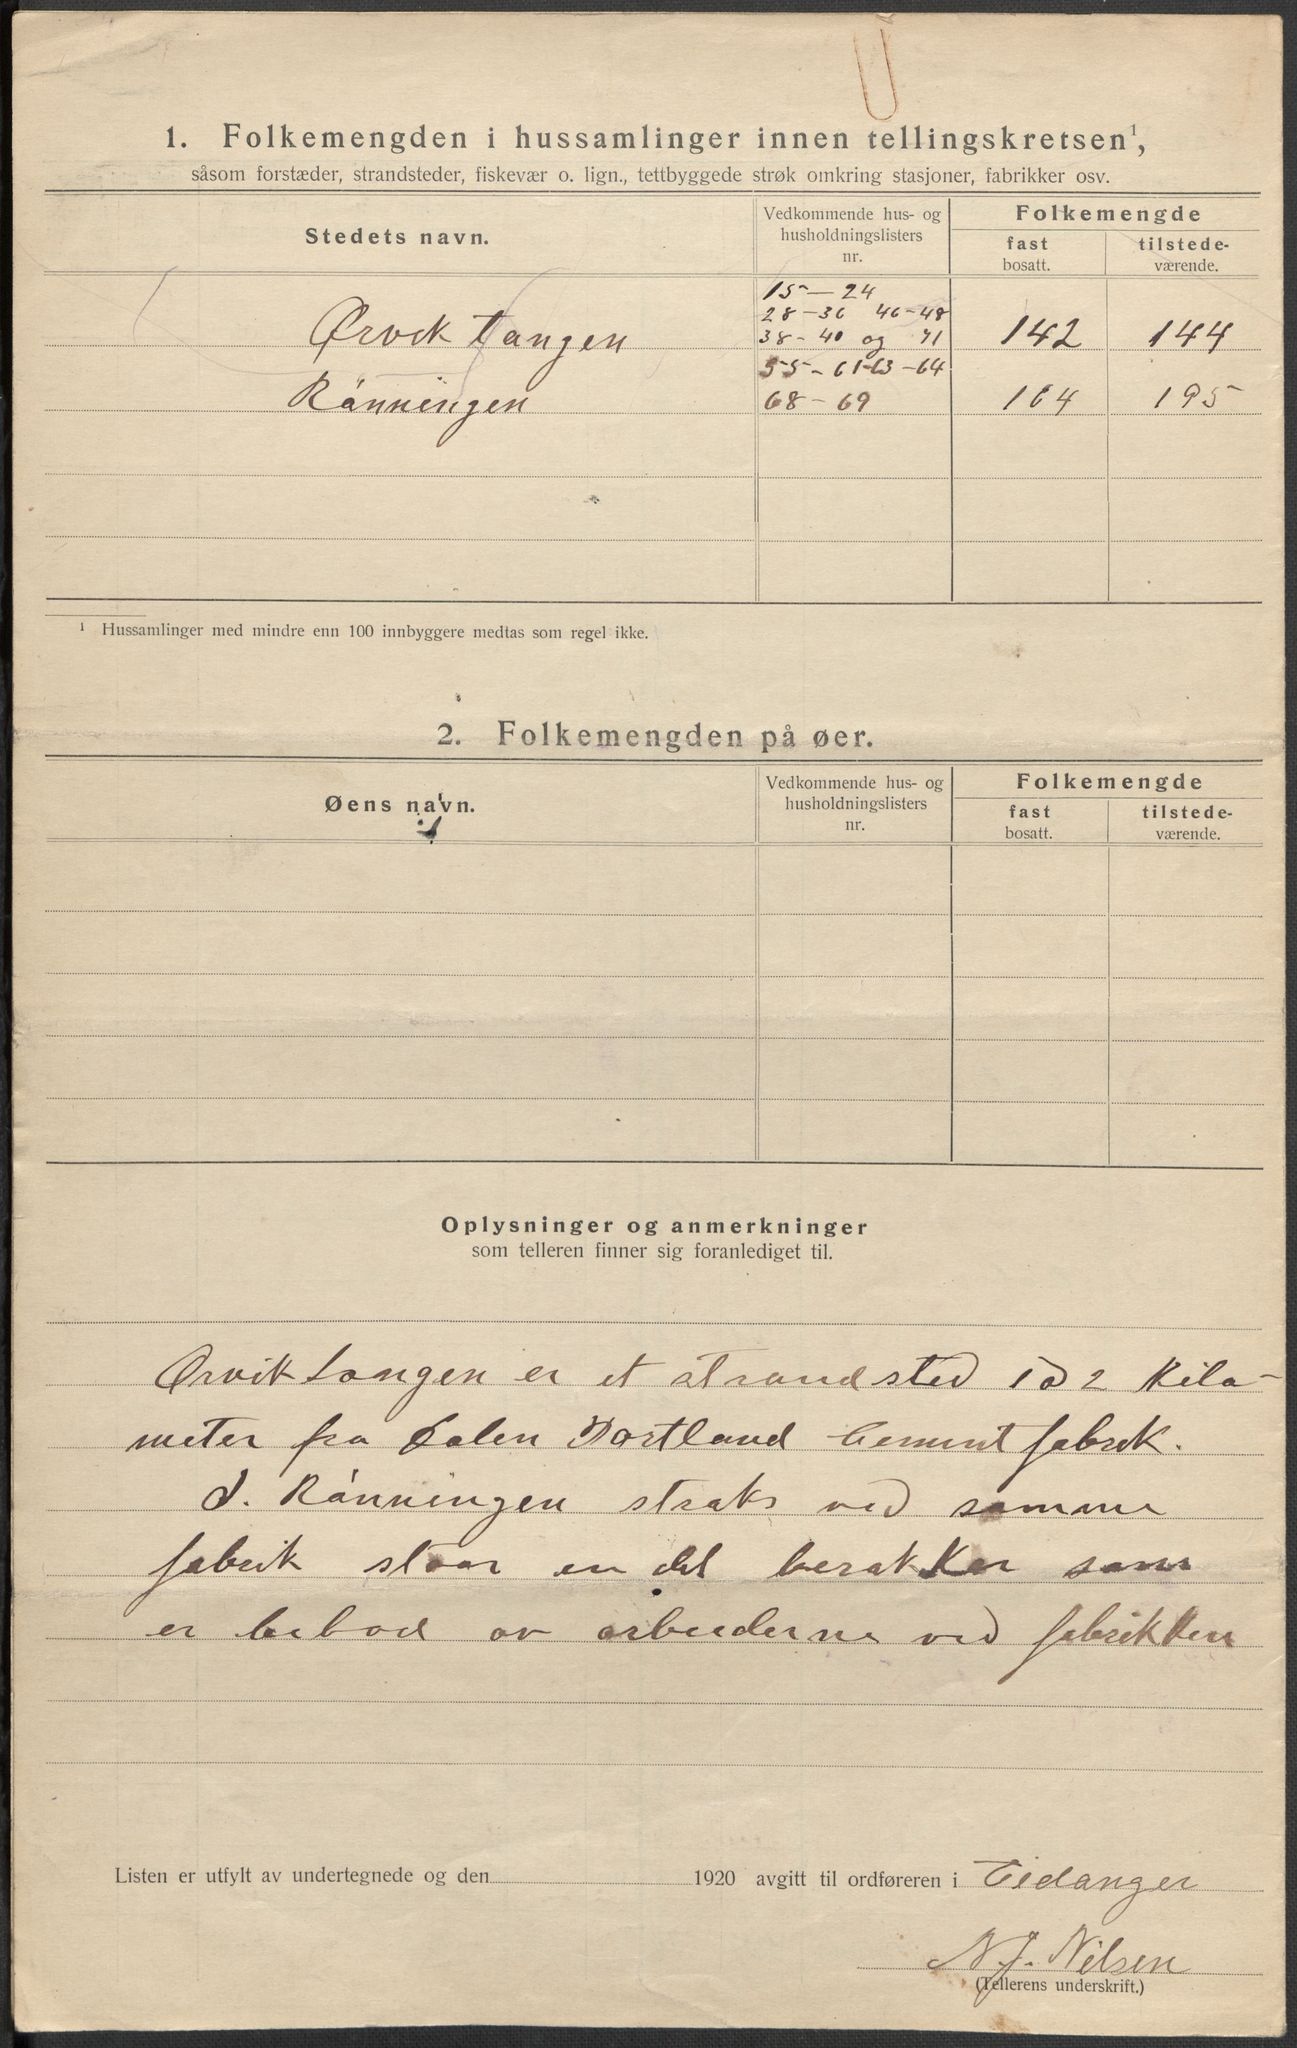 1. Folkemengden i hussamlinger innen tellingskretsen¹,
såsom forstæder, strandsteder, fiskevær o. lign., tettbyggede strøk omkring stasjoner, fabrikker osv.
Stedets navn.
Vedkommende hus- og
husholdningslisters
nr.
Folkemengde
fast
bosatt.
tilstede-
værende.
15-24
28-36 46-48
Ørvik tangen 38-40 og 71 142 144
55-61-63-64
Rønningen 68-69 164 195
¹ Hussamlinger med mindre enn 100 innbyggere medtas som regel ikke.
2. Folkemengden på øer.
Øens navn.
Vedkommende hus- og
husholdningslisters
nr.
Folkemengde
fast
bosatt.
tilstede-
værende.
Oplysninger og anmerkninger
som telleren finner sig foranlediget til.
Ørviktangen er et strandsted 1 a 2 Kilo-
meter fra Dalen Portland Cement fabrik.
I. Rønningen straks ved samme
fabrik staar en del berakker som
er bebod av arbeiderne ved fabrikken
Listen er utfylt av undertegnede og den 1920 avgitt til ordføreren i Eidanger
N. J. Nilsen
(Tellerens underskrift.)